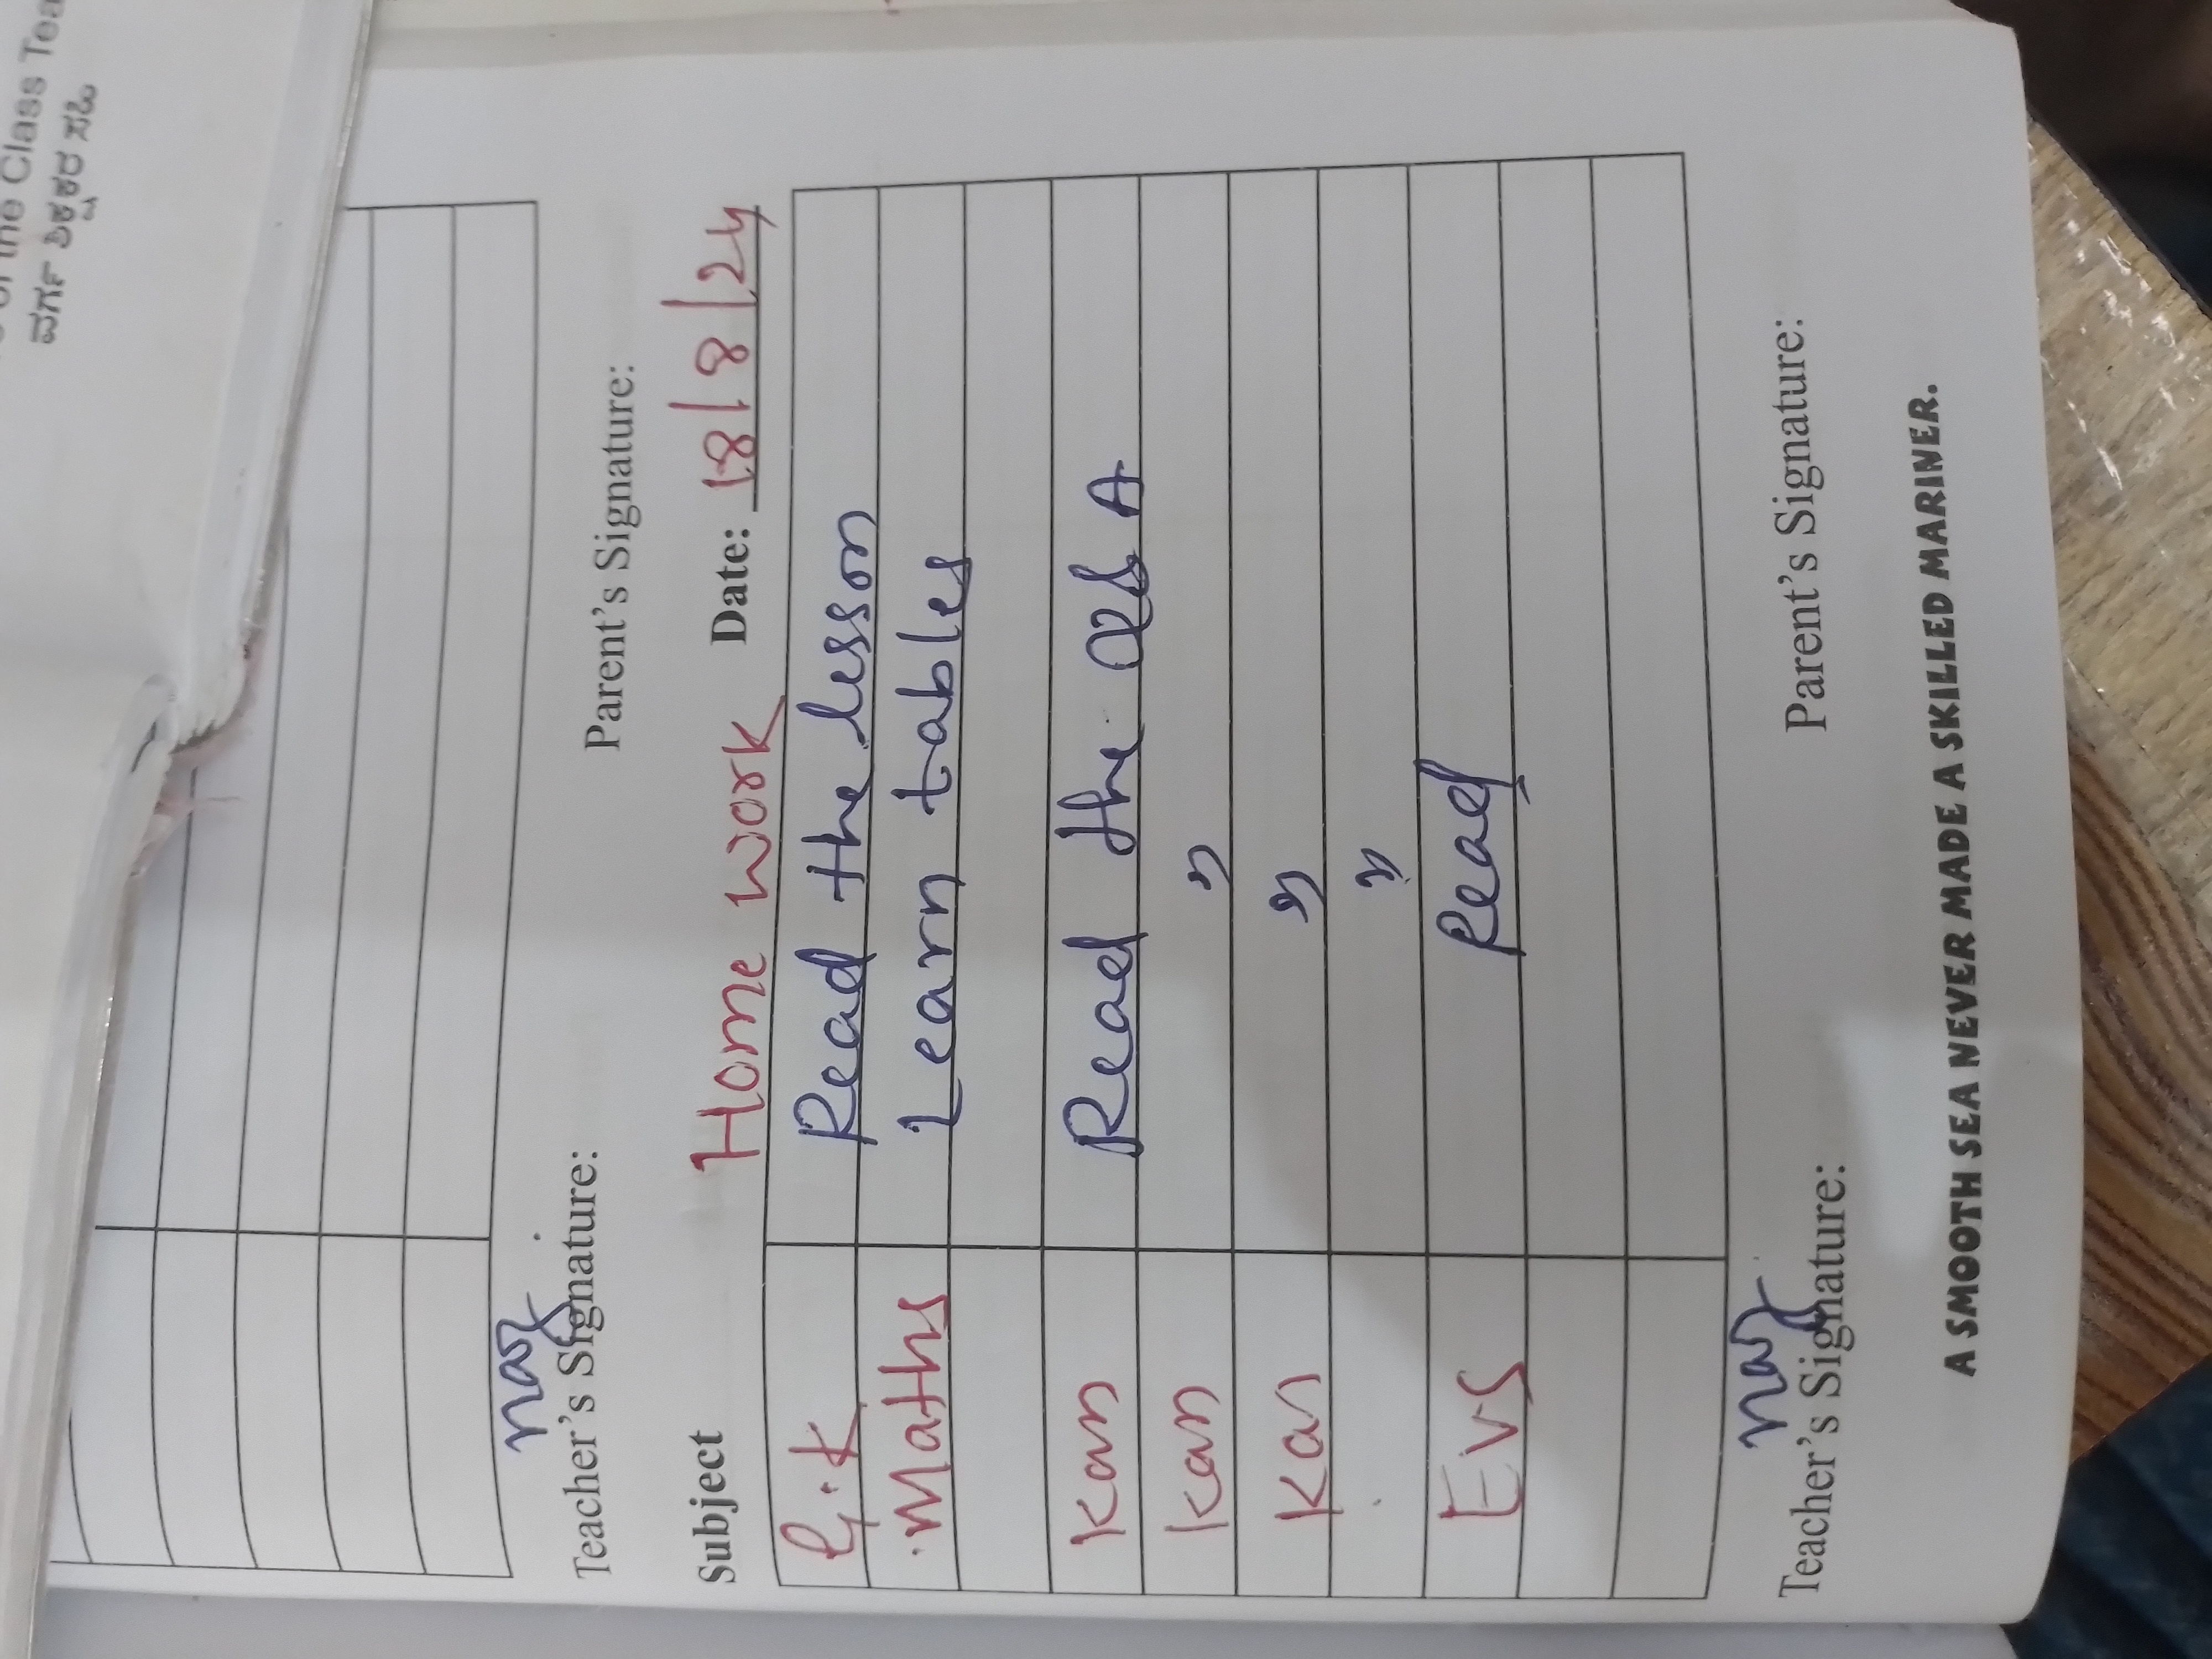 of the Class Tea
ವರ್ಗ ಶಿಕ್ಷಕರ ಸಹಿ
Teacher's Signature: Parent's Signature:
Subject Home work Date: 18/8/24
G.K Read the lesson
Maths Learn tables
Kan Read the A
Kan "
Kan "
"
EVS Read
Teacher's Signature: Parent's Signature:
A SMOOTH SEA NEVER MADE A SKILLED MARINER.